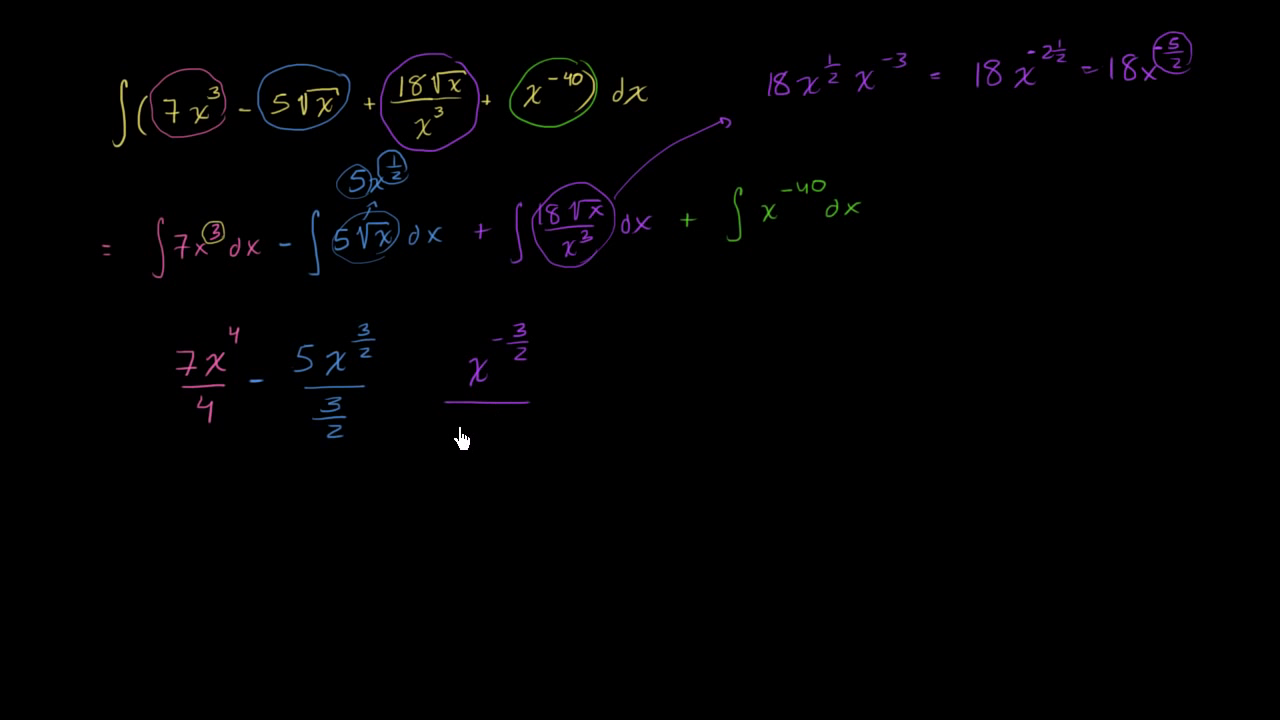 ∫(7x³ - 5√x + 18√x/x³ + x⁻⁴⁰) dx
18x^(1/2) x⁻³ = 18x^(-2 1/2) = 18x^(-5/2)
5x^(1/2)
= ∫7x³dx - ∫5√x dx + ∫18√x/x³ dx + ∫x⁻⁴⁰dx
7x⁴/4 - 5x^(3/2)/(3/2) x^(-3/2)